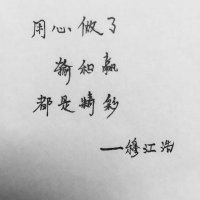 用心做了
输和赢
都是精彩
—穆江浩